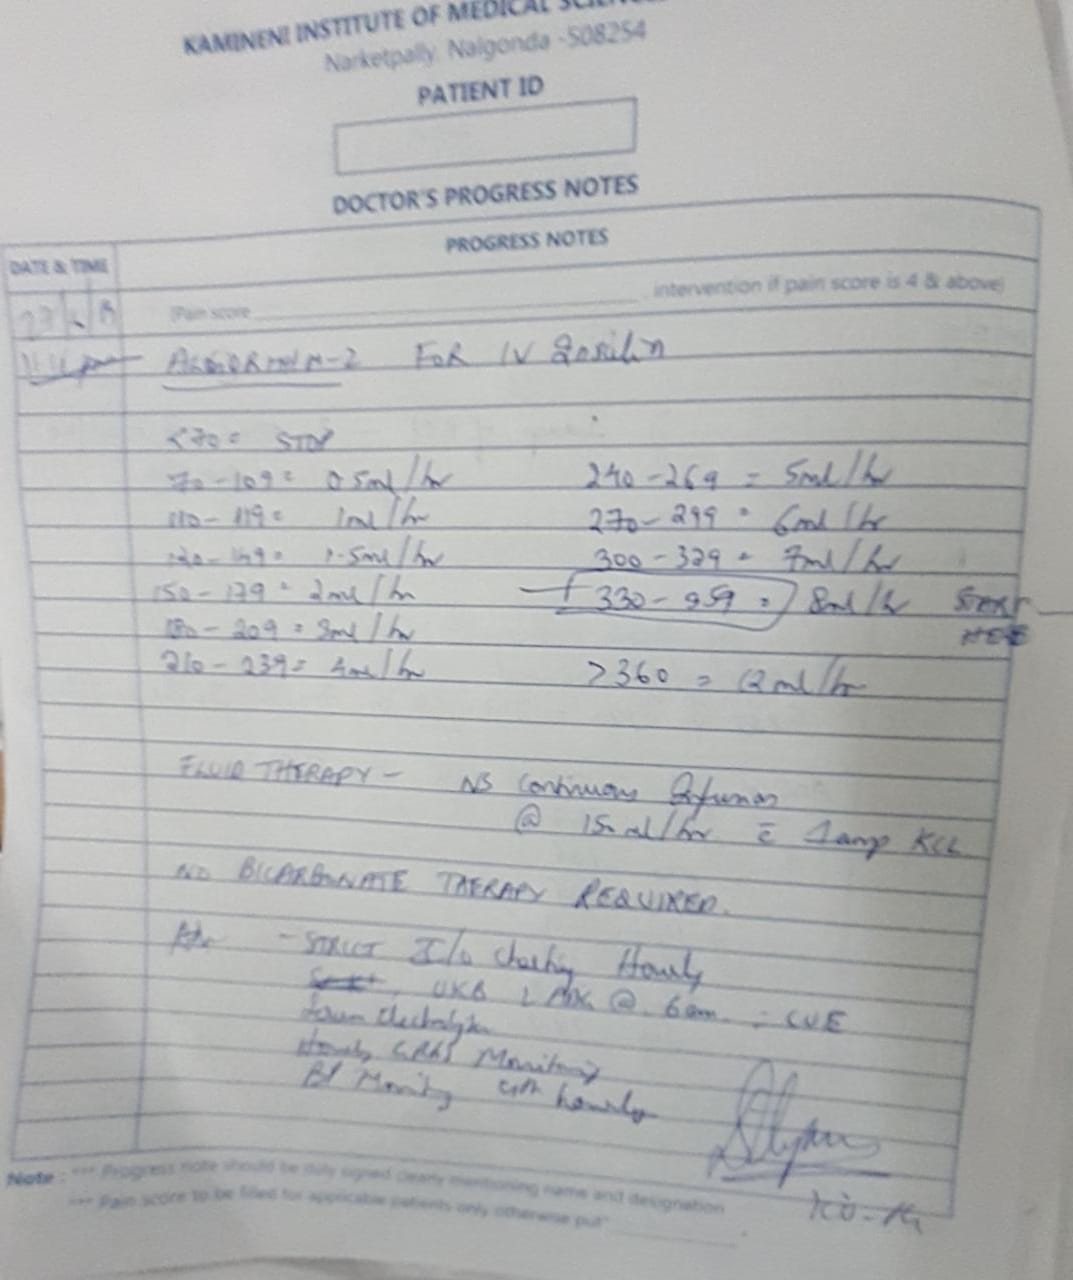 KAMINENI INSTITUTE OF MEDICAL
Narketpally, Nalgonda -508254
PATIENT ID
DOCTOR'S PROGRESS NOTES
DATE & TIME
PROGRESS NOTES
(Pain score intervention if pain score is 4 & above)
FOR IV
<70 = STOP
70-109 = 0.5ml/hr 240-269 = 5ml/hr
110-119 = 1ml/hr 270-299 = 6ml/hr
120-149 = 1.5ml/hr 300-329 = 7ml/hr
150-179 = 2ml/hr 330-359 = 8ml/hr START HERE
180-209 = 3ml/hr
210-239 = 4ml/hr >360 = 12ml/hr
FLUID THERAPY - NS Continuous Infusion
@ 150ml/hr c̄ 1amp KCL
NO BICARBONATE THERAPY REQUIRED.
- STRICT I/O Charting Hourly
UKB @ 6am - CUE
Serum Electrolytes
Hourly GRBS Monitoring
BP Monitoring 4th hourly
Note : *** Progress note should be duly signed clearly mentioning name and designation
*** Pain score to be filled for applicable patients only otherwise put"